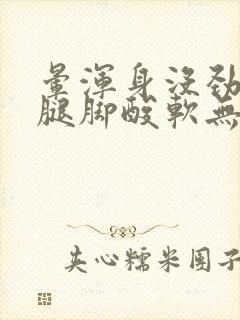 暈渾身沒勁
腿脚酸軟無
夹心糯米团子